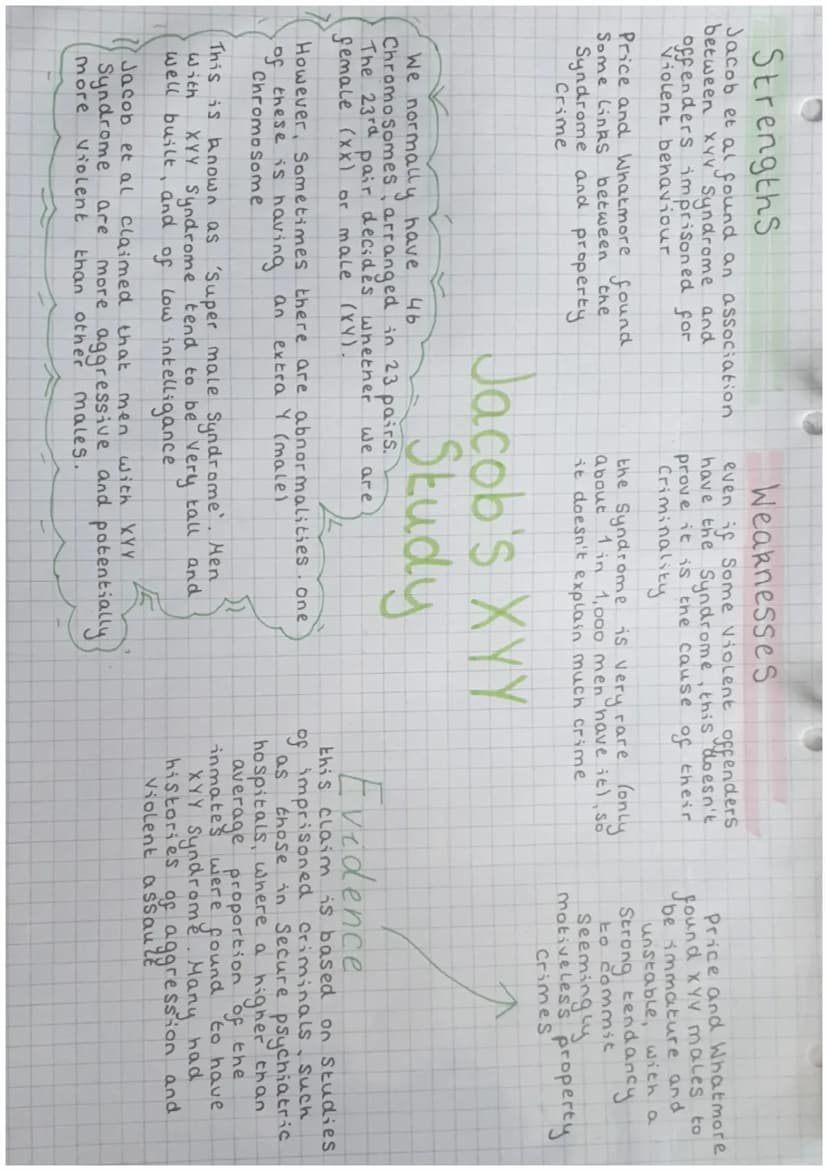 Strengths
Jacob et al found an association
between XYY Syndrome and
offenders imprisoned for
violent behaviour
Price and Whatmore found
some links between the
Syndrome and property
crime
Weaknesses
even if some violent offenders
have the syndrome, this doesn't
prove it is the cause of their
criminality
the syndrome is very rare (only
about 1 in 1,000 men have it), so
it doesn't explain much crime
Jacob's XYY
Study
We normally have 46
Chromosomes, arranged in 23 pairs.
The 23rd pair decides whether we are
female (XX) or male (XY).
However, sometimes there are abnormalities. one
of these is having an extra Y (male)
chromosome
This is known as 'super male syndrome'. Men
with XYY Syndrome tend to be very tall and
well built, and of low intelligance
Jacob et al claimed that men with XYY
Syndrome are more aggressive and potentially
more violent than other males.
Evidence
this claim is based on studies
of imprisoned criminals, such
as those in secure psychiatric
hospitals, where a higher than
average proportion of the
inmates were found to have
XYY Syndrome. Many had
histories of aggression and
violent assault
Price and Whatmore
found XYY males to
be immature and
unstable, with a
strong tendancy
to commit
seemingly
motiveless property
crimes